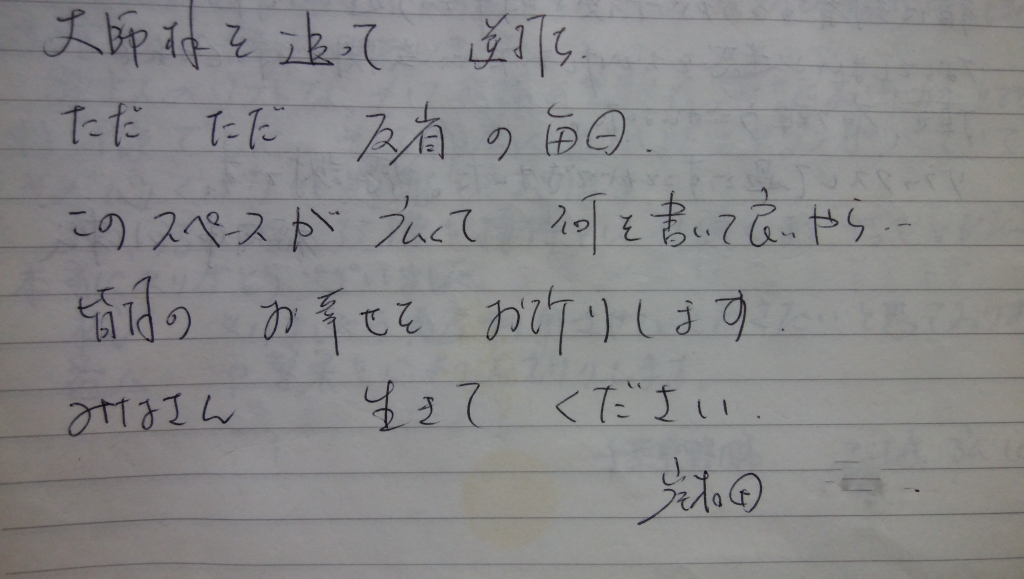 大師様を追って 逆打ち.
ただ ただ 反省の毎日.
このスペースが 広くて 何を書いて良いやら..
皆様の お幸せを お祈りします.
みなさん 生きて ください.